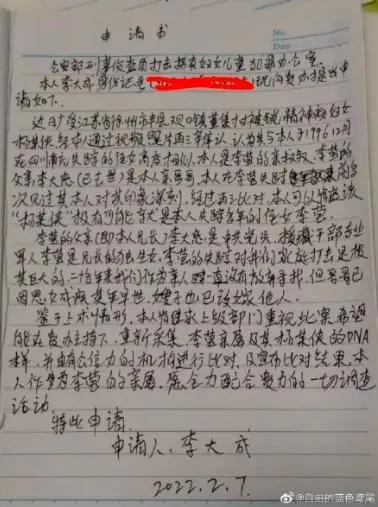 申请书
No.
Date
公安部刑事侦查局打击拐卖妇女儿童犯罪办公室
本人李大成身份证号 现向贵办提出申
请如下。
近日广受江苏省徐州市丰县欢口镇董集村被锁精神病妇女
杨某侠 经本人通过视频照片再三辨认、认为其与本人于1996 12月
在四川南充失踪的侄女高度相似。本人是李莹的亲叔叔、李莹的
父亲李大忠(已去世)是本人亲哥哥、本人在李莹失踪前
次见过其 本人对其印象深刻。经过再三比对、本人可以 该
“杨某侠”极有可能就是本人失踪多年的侄女李莹.
李莹的父亲(即本人兄长)李大忠是中共党员、援藏干部专业
军人李莹是兄长的独生女、李莹的失踪对我们家族打击是极
其巨大的.二十六年来我们作为亲人 一直没有放弃寻找,但哥哥已
因思女成疾英年早世.嫂子也已改嫁他人.
鉴于上术情形.本人特恳求上级部门重视此案 希望
能在贵办主持下.重新采集.李莹亲属及其杨某侠的DNA
样,并由有公信力的机构进行比对.及宣布比对结果.本
人作为李莹的亲属.愿全力配合贵办的一切调查
活动.
特此申请.
申请人.李大成
2022.2.7.
@自由的蓝色鸢尾